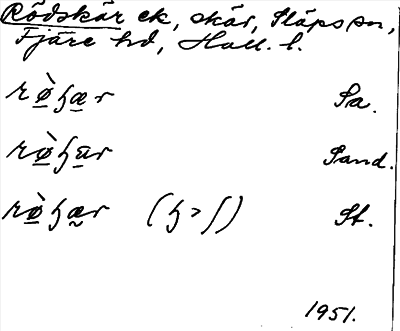 Rödskär ek, skär, Släps sn,
Fjäre hd, Hall. l.
rø̀ɧær Sa.
rø̀ɧär Sand.
rø̀ɧær (ɧ > ʃ) St.
1951.